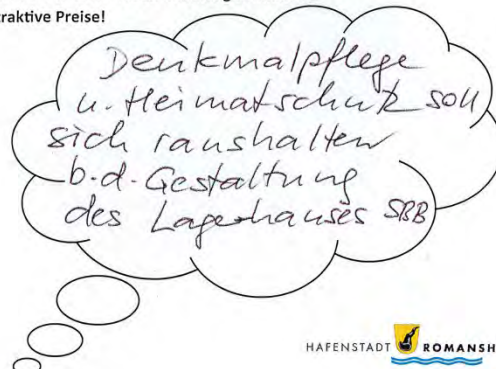 traktive Preise!
Denkmalpflege
u. Heimatschutz soll
sich raushalten
b.d. Gestaltung
des Lagerhauses SBB
HAFENSTADT ROMANSH